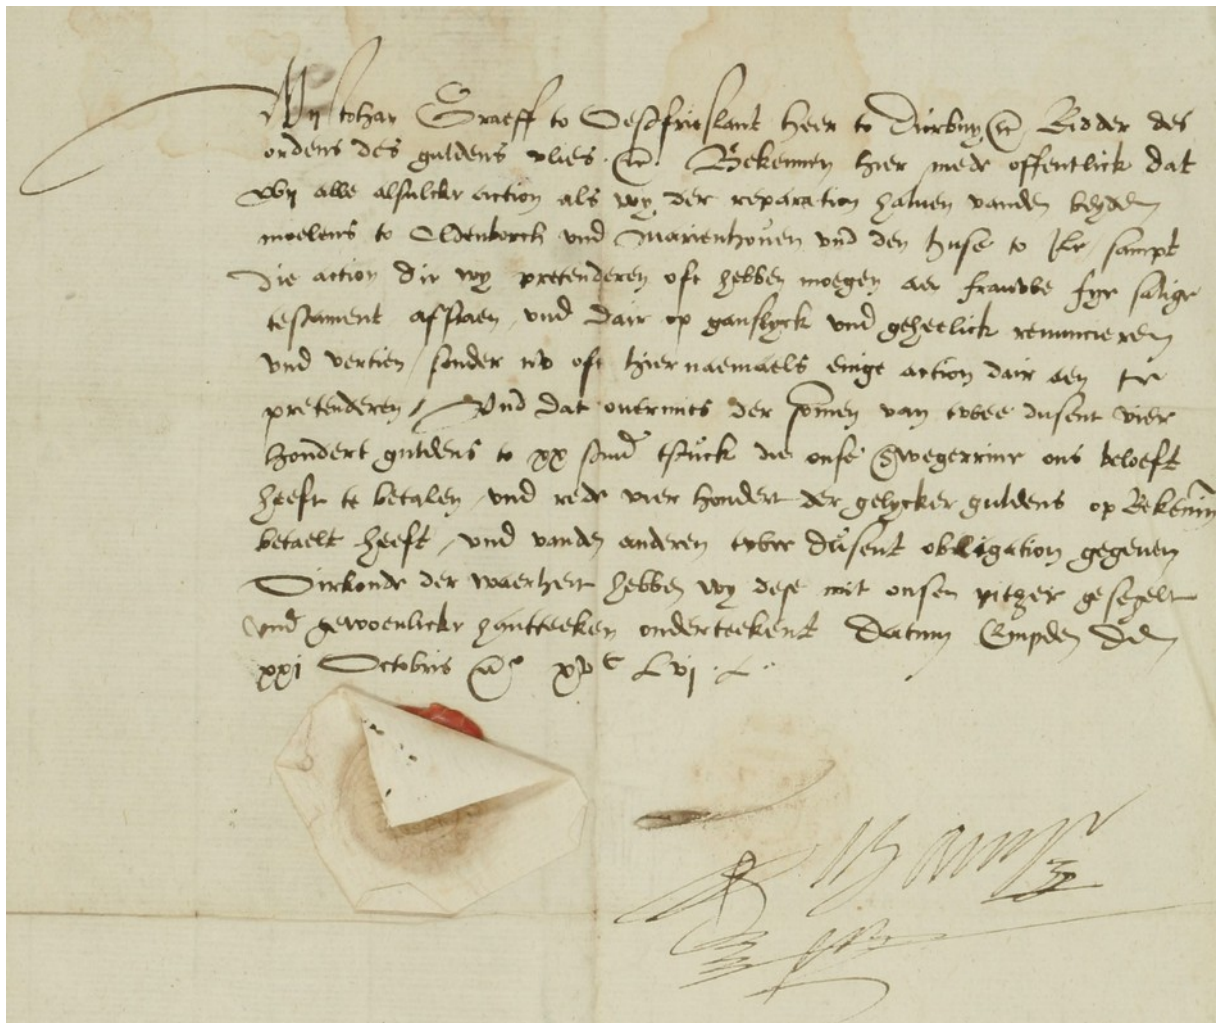 Wij Johan Graeff to Oestfrieslant heer to Durbuy etc. Ridder des
ordens des guldens vlies etc. Bekennen hier mede offentlick dat
wij alle alsulcke action als wy der reparation haluen vanden beyden
moelens to Oldenborch vnd Marienhouen vnd den huse to sampt
Die action die wy pretenderen oft hebben moegen aen frauwe salige
testament affstaen vnd dair op ganslyck vnd geheelick renuncieren
vnd vertien sonder nv oft hier naemaels einige action dair aen te
pretenderen / Vnd dat ouermits der somen van twee dusent vier
hondert guldens to xx stuck die onse Swegerinne ons beloeft
heeft te betalen vnd rede vier hondert der gelycker guldens op
betaelt heeft / vnd vanden anderen twee dusent obligation gegeuen
Oirkonde der waerheit hebben wy dese mit onsen pitzer gesegelt
vnd gewoenlicke hantteeken onderteekent Datum Empden den
xxi Octobris ao xvc Lvj